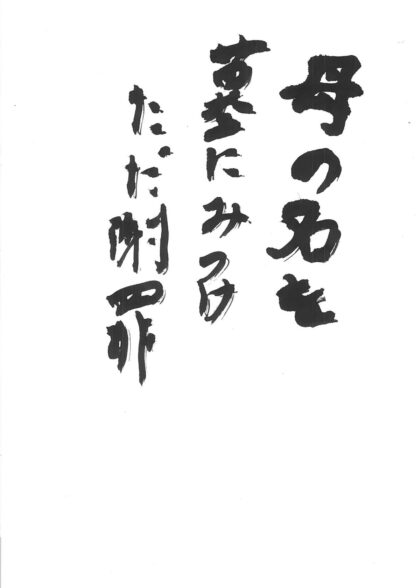 母の名を
墓にみつけ
ただ謝罪